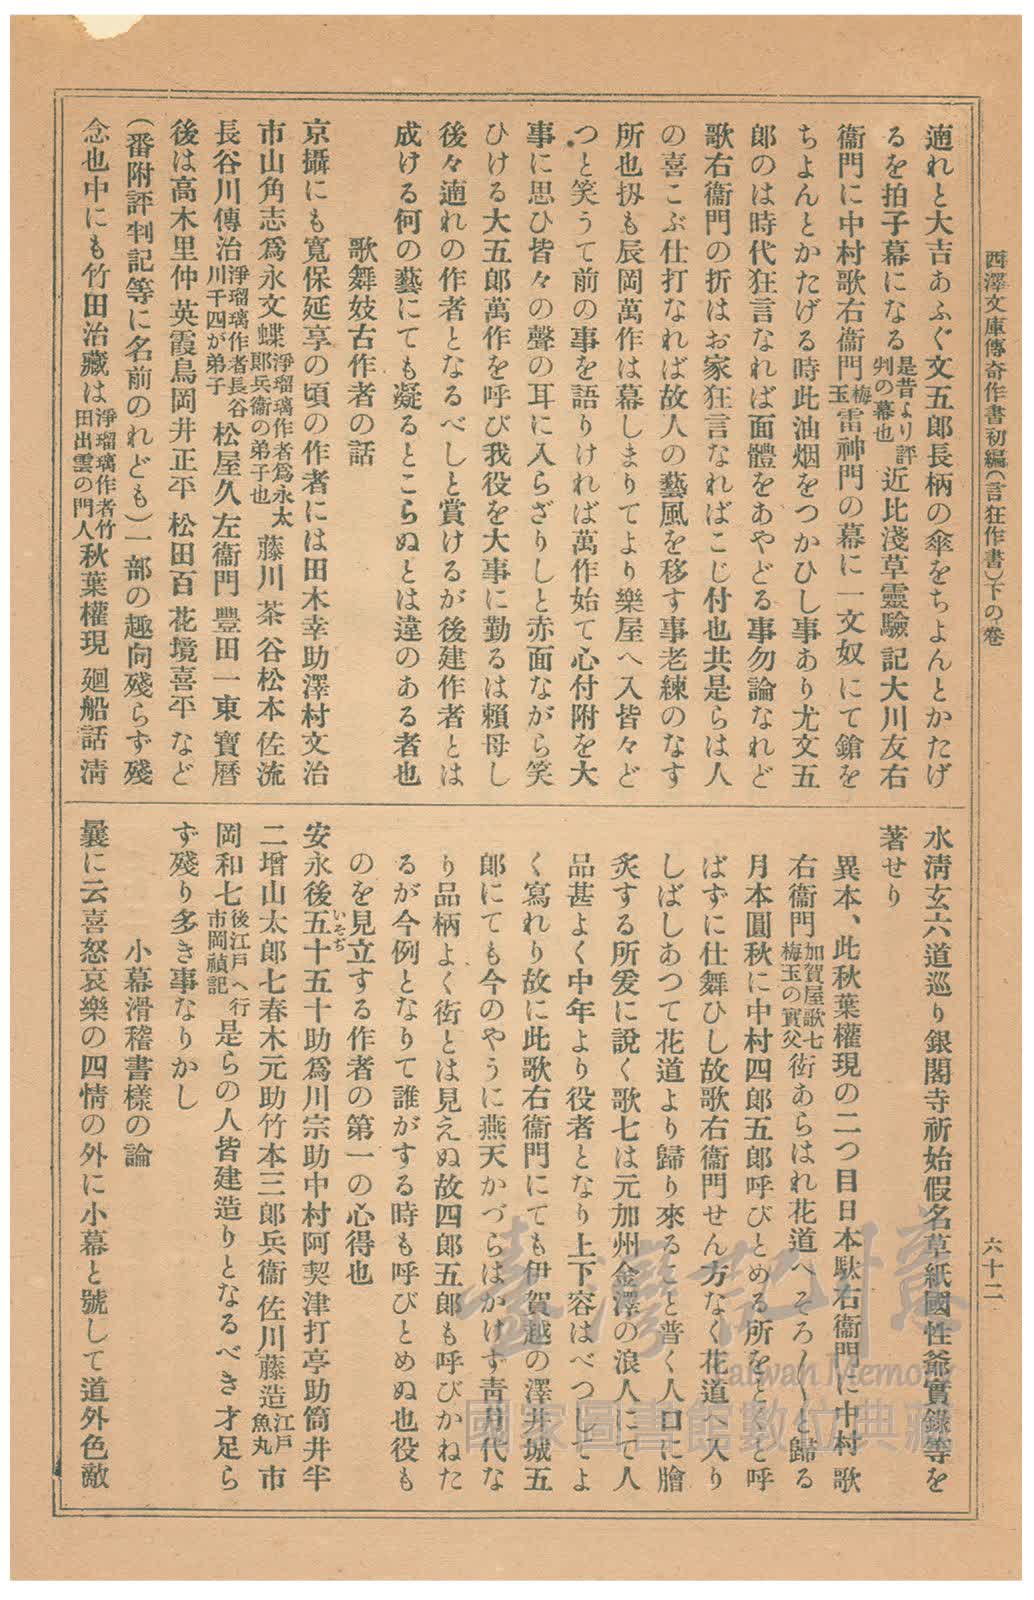 西澤文庫傳奇作書初編(言狂作書)下の卷
六十二
適れと大吉あふぐ文五郎長柄の傘をちよんとかたげ
るを拍子幕になる是昔より評判の幕也近比淺草靈驗記大川友右
衞門に中村歌右衞門梅玉雷神門の幕に一文奴にて鎗を
ちよんとかたげる時此油烟をつかひし事あり尤文五
郎のは時代狂言なれば面體をあやどる事勿論なれど
歌右衞門の折はお家狂言なればこじ付也共是らは人
の喜こぶ仕打なれば故人の藝風を移す事老練のなす
所也扨も辰岡萬作は幕しまりてより樂屋へ入皆々ど
つと笑うて前の事を語りければ萬作始て心付附を大
事に思ひ皆々の聲の耳に入らざりしと赤面ながら笑
ひける大五郎萬作を呼び我役を大事に勤るは賴母し
後々適れの作者となるべしと賞けるが後建作者とは
成ける何の藝にても凝るとこらぬとは違のある者也
歌舞妓古作者の話
京攝にも寬保延享の頃の作者には田木幸助澤村文治
市山角志爲永文蝶淨瑠璃作者爲永太郎兵衞の弟子也藤川茶谷松本佐流
長谷川傳治淨瑠璃作者長谷川千四が弟子松屋久左衞門豐田一東寶曆
後は高木里仲英霞鳥岡井正平松田百花境喜平など
(番附評判記等に名前のれども)一部の趣向殘らず殘
念也中にも竹田治藏は淨瑠璃作者竹田出雲の門人秋葉權現廻船話淸
水淸玄六道巡り銀閣寺祈始假名草紙國性爺實錄等を
著せり
異本、此秋葉權現の二つ目日本駄右衞門に中村歌
右衞門加賀屋歌七梅玉の實父衒あらはれ花道へそろ〳〵と歸る
月本圓秋に中村四郎五郎呼びとめる所をとくと呼
ばずに仕舞ひし故歌右衞門せん方なく花道へ入り
しばしあつて花道より歸り來ること普く人口に膾
炙する所爰に說く歌七は元加州金澤の浪人にて人
品甚よく中年より役者となり上下容はべつしてよ
く寫れり故に此歌右衞門にても伊賀越の澤井城五
郎にても今のやうに燕天かづらはかけず靑月代な
り品柄よく衒とは見えぬ故四郎五郎も呼びかねた
るが今例となりて誰がする時も呼びとめぬ也役も
のを見立する作者の第一の心得也
安永後五十五十助いそぢ爲川宗助中村阿契津打亭助筒井半
二增山太郎七春木元助竹本三郎兵衞佐川藤造江戶魚丸市
岡和七後江戶へ行市岡禎記是らの人皆建造りとなるべき才足ら
ず殘り多き事なりかし
小幕滑稽書樣の論
曩に云喜怒哀樂の四情の外に小幕と號して道外色敵
臺灣記憶
Taiwan Memory
國家圖書館數位典藏